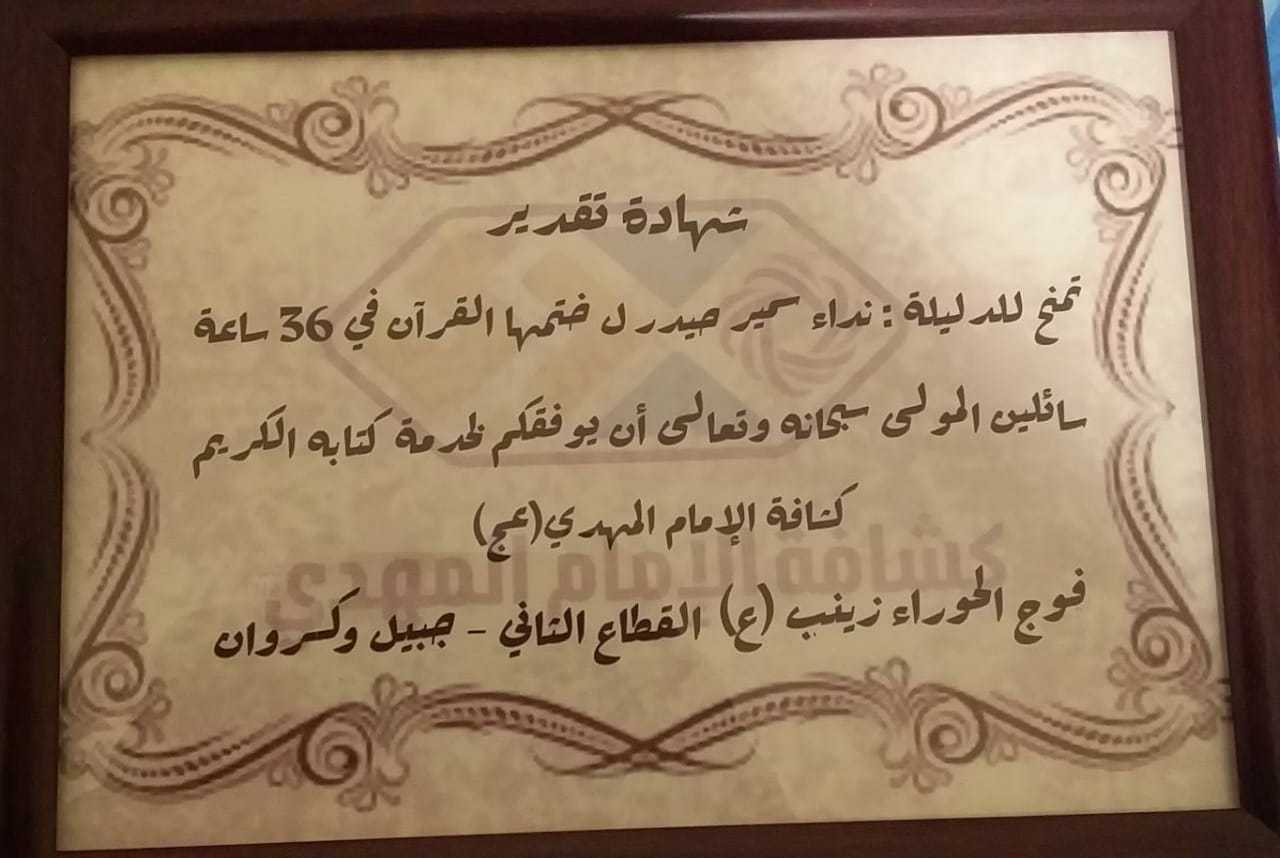 شهادة تقدير
تمنح للدليلة : نداء سمير حيدر ل ختمها القرآن في 36 ساعة
سائلين المولى سبحانه وتعالى أن يوفقكم لخدمة كتابه الكريم
كشافة الإمام المهدي(عج)
كشافة الامام المهدي
فوج الحوراء زينب (ع) القطاع الثاني - جبيل وكسروان